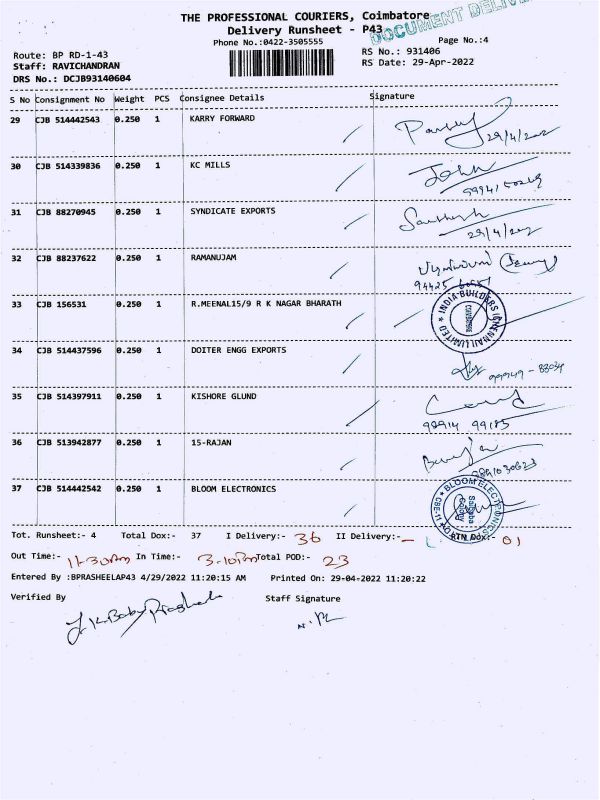 THE PROFESSIONAL COURIERS, Coimbatore
Delivery Runsheet - P43
DOCUMENT
Phone No.:0422-3505555
Page No.:4
Route: BP RD-1-43
RS No.: 931406
Staff: RAVICHANDRAN
RS Date: 29-Apr-2022
DRS No.: DCJB93140604
S No Consignment No Weight PCS Consignee Details Signature
29 CJB 514442543 0.250 1 KARRY FORWARD
30 CJB 514339836 0.250 1 KC MILLS John
31 CJB 88270945 0.250 1 SYNDICATE EXPORTS Santhosh
29/4/202
32 CJB 88237622 0.250 1 RAMANUJAM
33 CJB 156531 0.250 1 R.MEENAL15/9 R K NAGAR BHARATH
INDIA BUILDERS (CHENNAI) LIMITED
COIMBATORE
34 CJB 514437596 0.250 1 DOITER ENGG EXPORTS
99949-88034
35 CJB 514397911 0.250 1 KISHORE GLUND
98914 99185
36 CJB 513942877 0.250 1 15-RAJAN
9891030623
37 CJB 514442542 0.250 1 BLOOM ELECTRONICS
BLOOM ELECTRONICS
CBE-11
Tot. Runsheet:- 4 Total Dox:- 37 I Delivery:- 36 II Delivery:- - RTN Dox:- 01
Out Time:- 11-30Am In Time:- 3-10Pm Total POD:- 23
Entered By :BPRASHEELAP43 4/29/2022 11:20:15 AM Printed On: 29-04-2022 11:20:22
Verified By Staff Signature